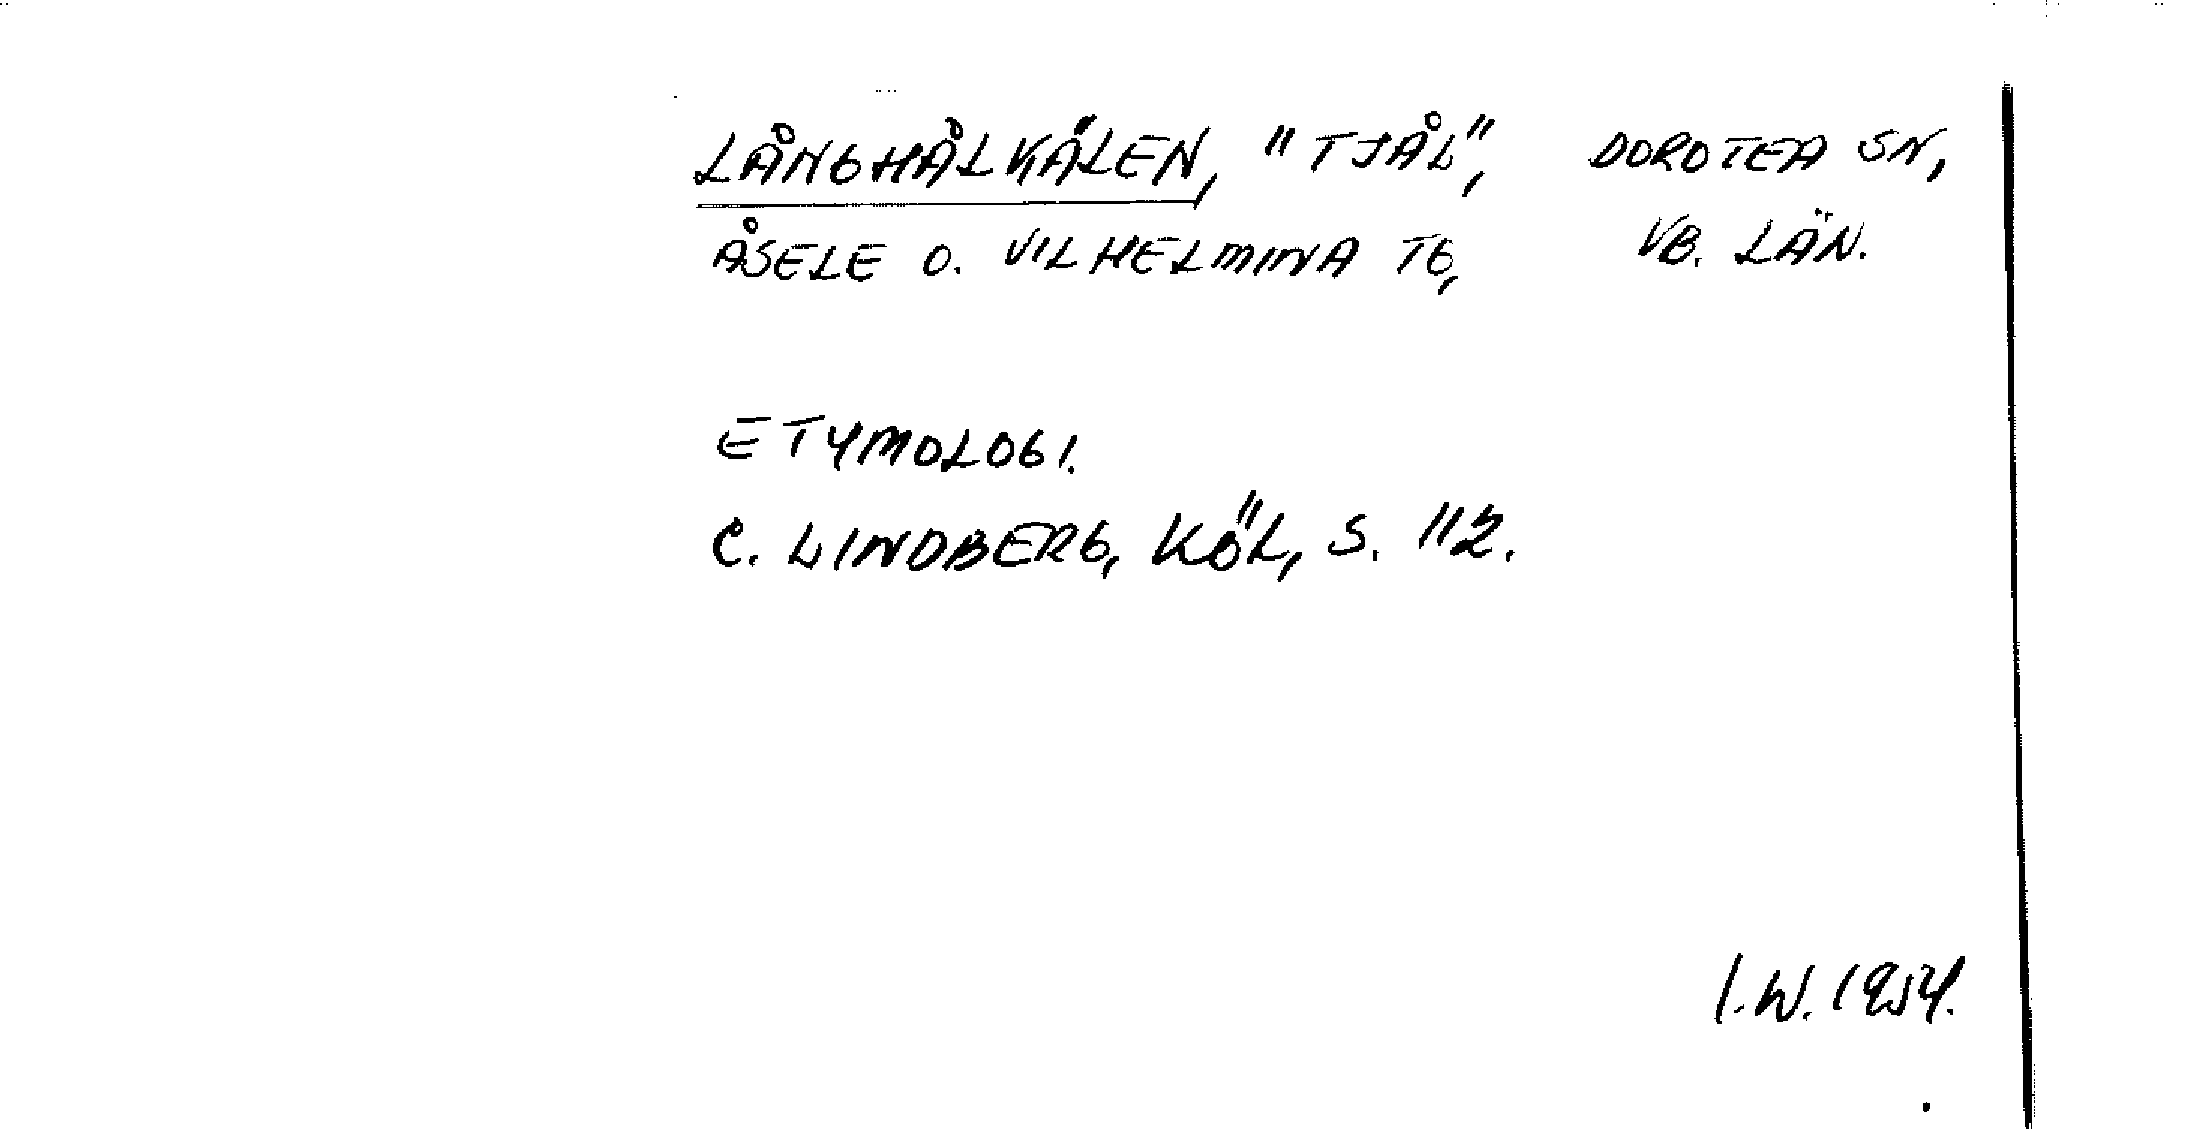 LÅNGHÅLKÄLEN, "TJÅL", DOROTEA SN,
ÅSELE O. VILHELMINA TG, VB. LÄN.
ETYMOLOGI.
C. LINDBERG, KÖL, S. 112.
I.W. 1954.